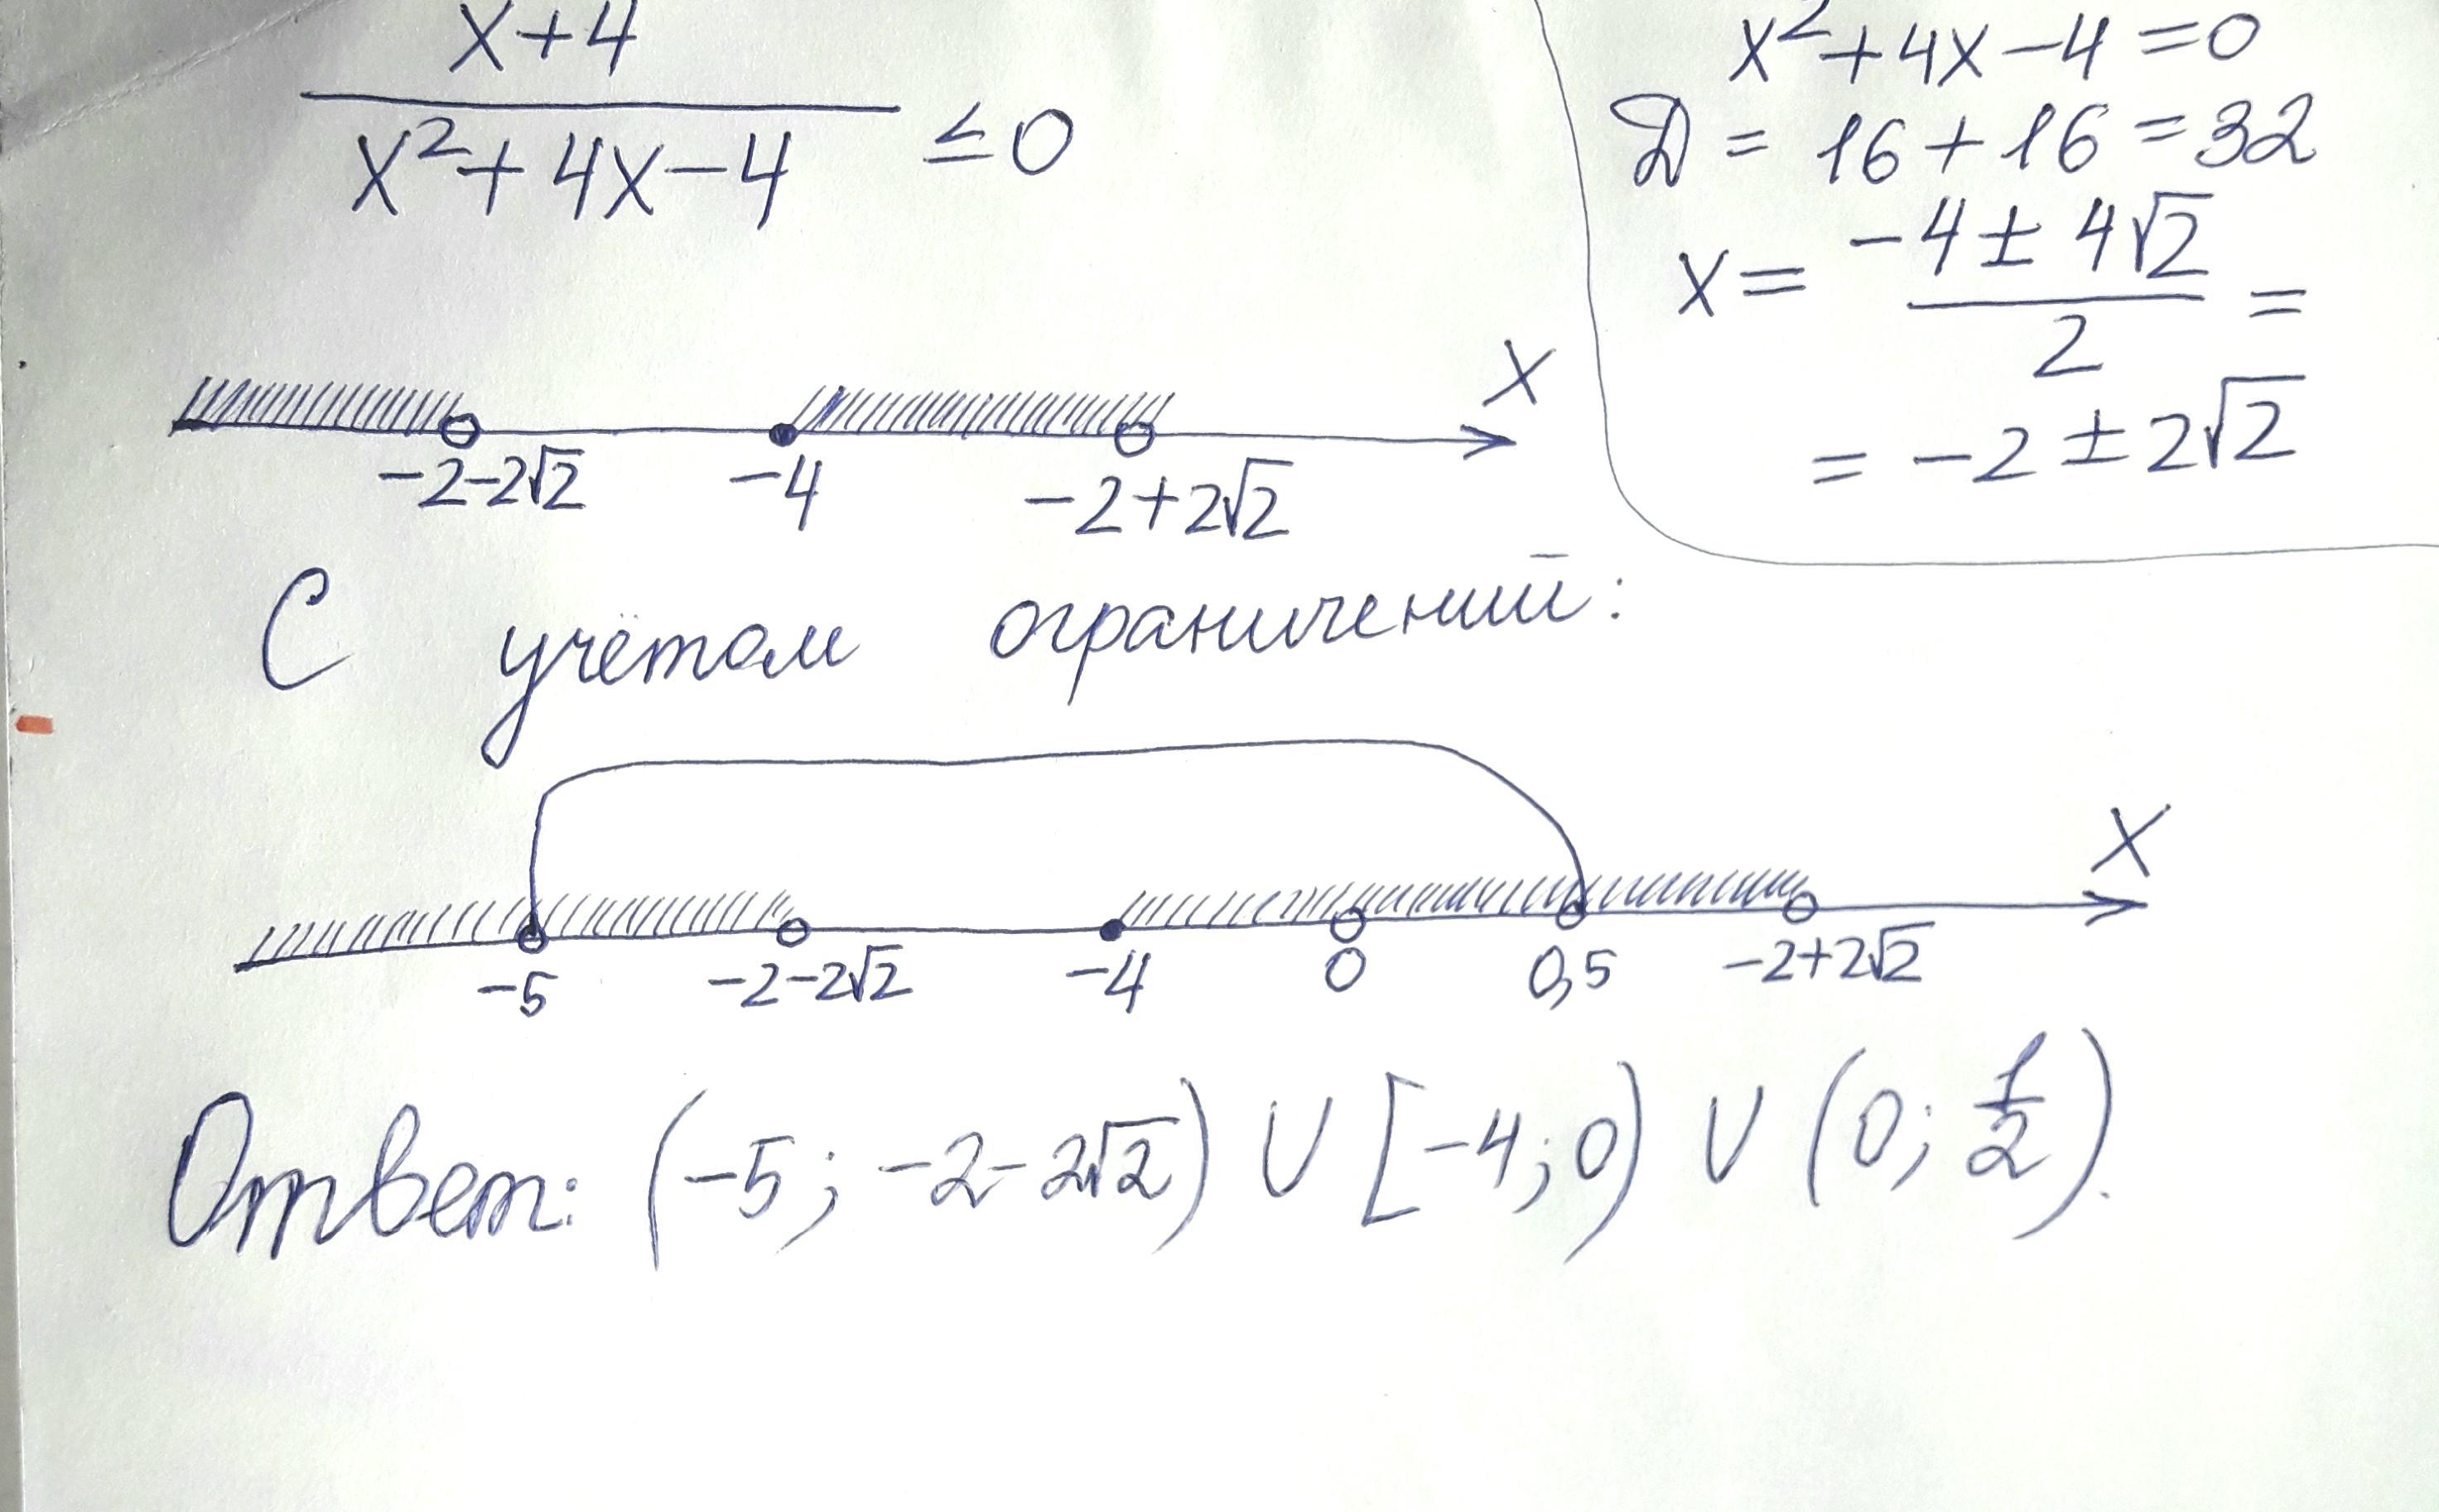 x+4
x²+4x-4 ≤0
x²+4x-4=0
Д = 16+16=32
x= -4±4√2 =
2
= -2±2√2
x
-2-2√2 -4 -2+2√2
С учётом ограничений:
x
-5 -2-2√2 -4 0 0,5 -2+2√2
Ответ: (-5; -2-2√2) ∪ [-4;0) ∪ (0; 1/2).